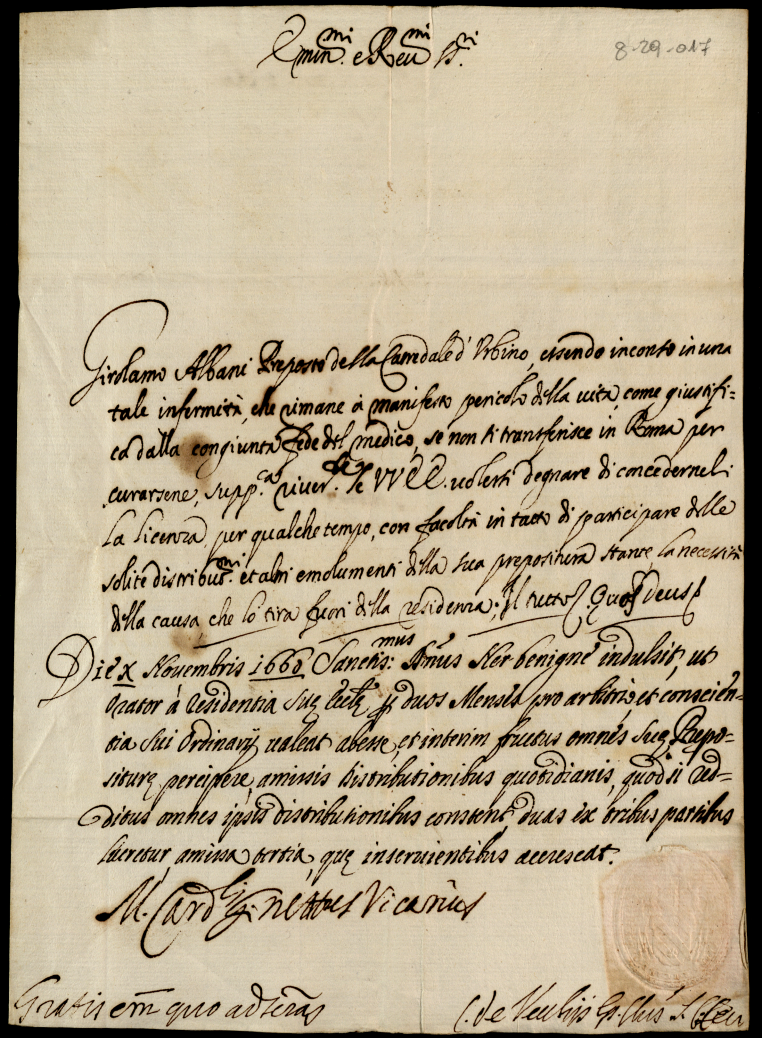 8-29-017
Em.mi e Reu.mi S.ri
Girolamo Albani Preposto della Catredale d'Vrbino, essendo inconso in una
tale infermità, che rimane à manifesto pericolo della uita, come giustifi=
ca dalla congiunta fede del medico, se non si transferisce in Roma per
curarsene, supp.ca le VV EE. uolersi degnare di concederneli
la licenza per qualche tempo, con facoltà in tatto di participare delle
solite distribut.ni et altri emolumenti della sua prepositura stante la necessità
della causa che lo tira fuori della residenza. Il tutto Quas Deus
Die X Nouembris 1666 Sanctis.mus D.nus N.er benignè indulsit, ut
Orator à residentia suę Eccl.ę duos Menses pro arbitrio, et conscien=
tia sui Ordinarij ualeat abesse, et interim fructus omnes suę Prępo=
siturę percipere, amissis distributionibus quotidianis, quod si red=
ditus omnes ipsis distributionibus constent, duas ex tribus partibus
lucretur, amissa tertia, quę inseruientibus accrescat.
M. Card.lis Ginettus Vicarius
Gratis etiã quo ad scrãs
C. de Vecchijs